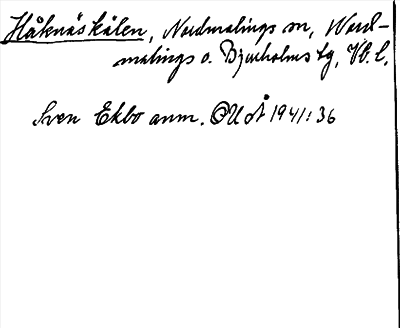 Håknäskälen, Nordmalings sn, Nord-
malings o. Bjurholms tg, Vb. l.
Sven Ekbo anm. OUÅ 1941: 36